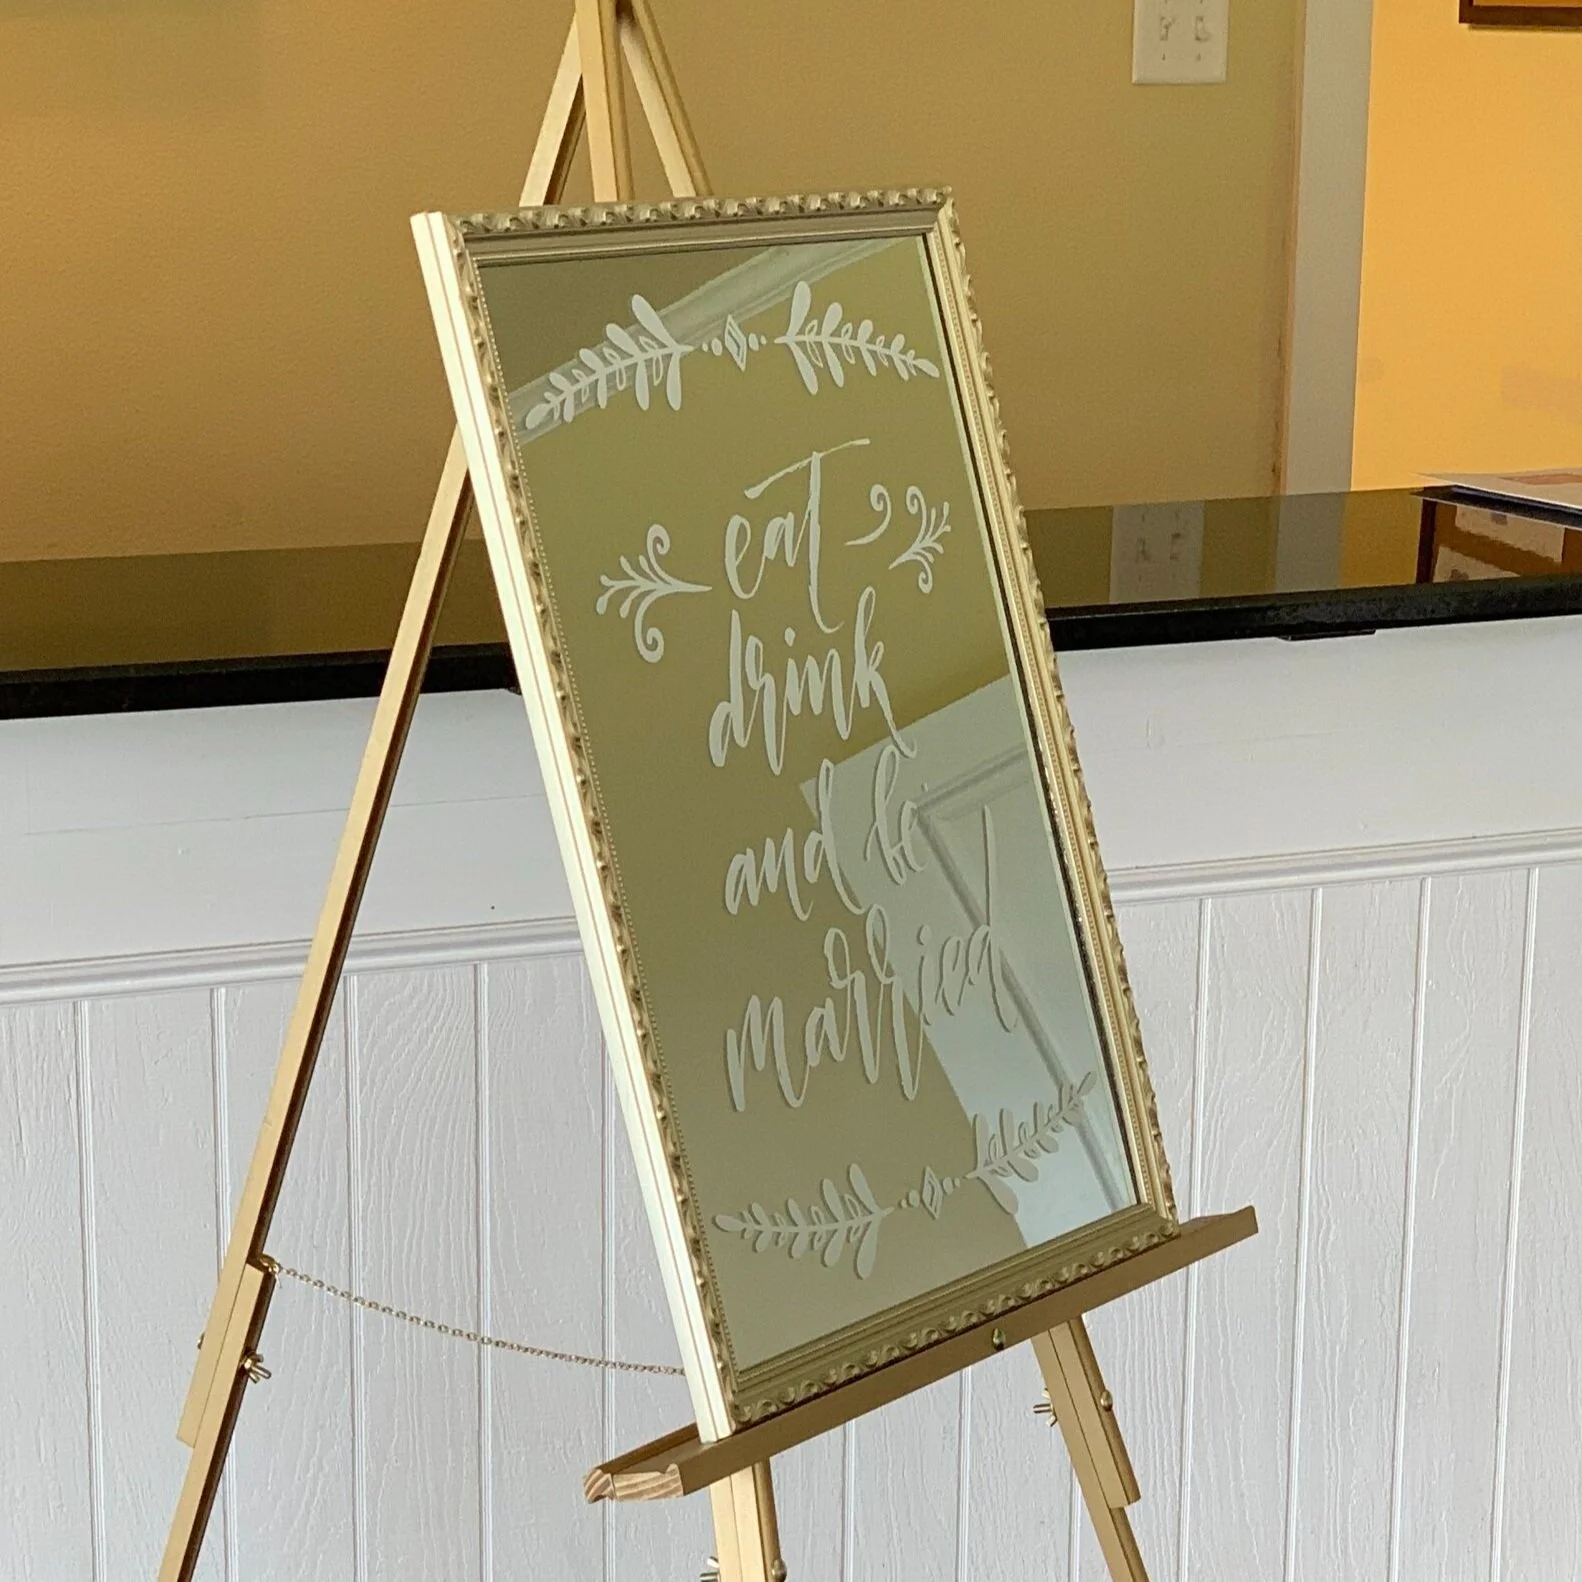 eat
drink
and be
married